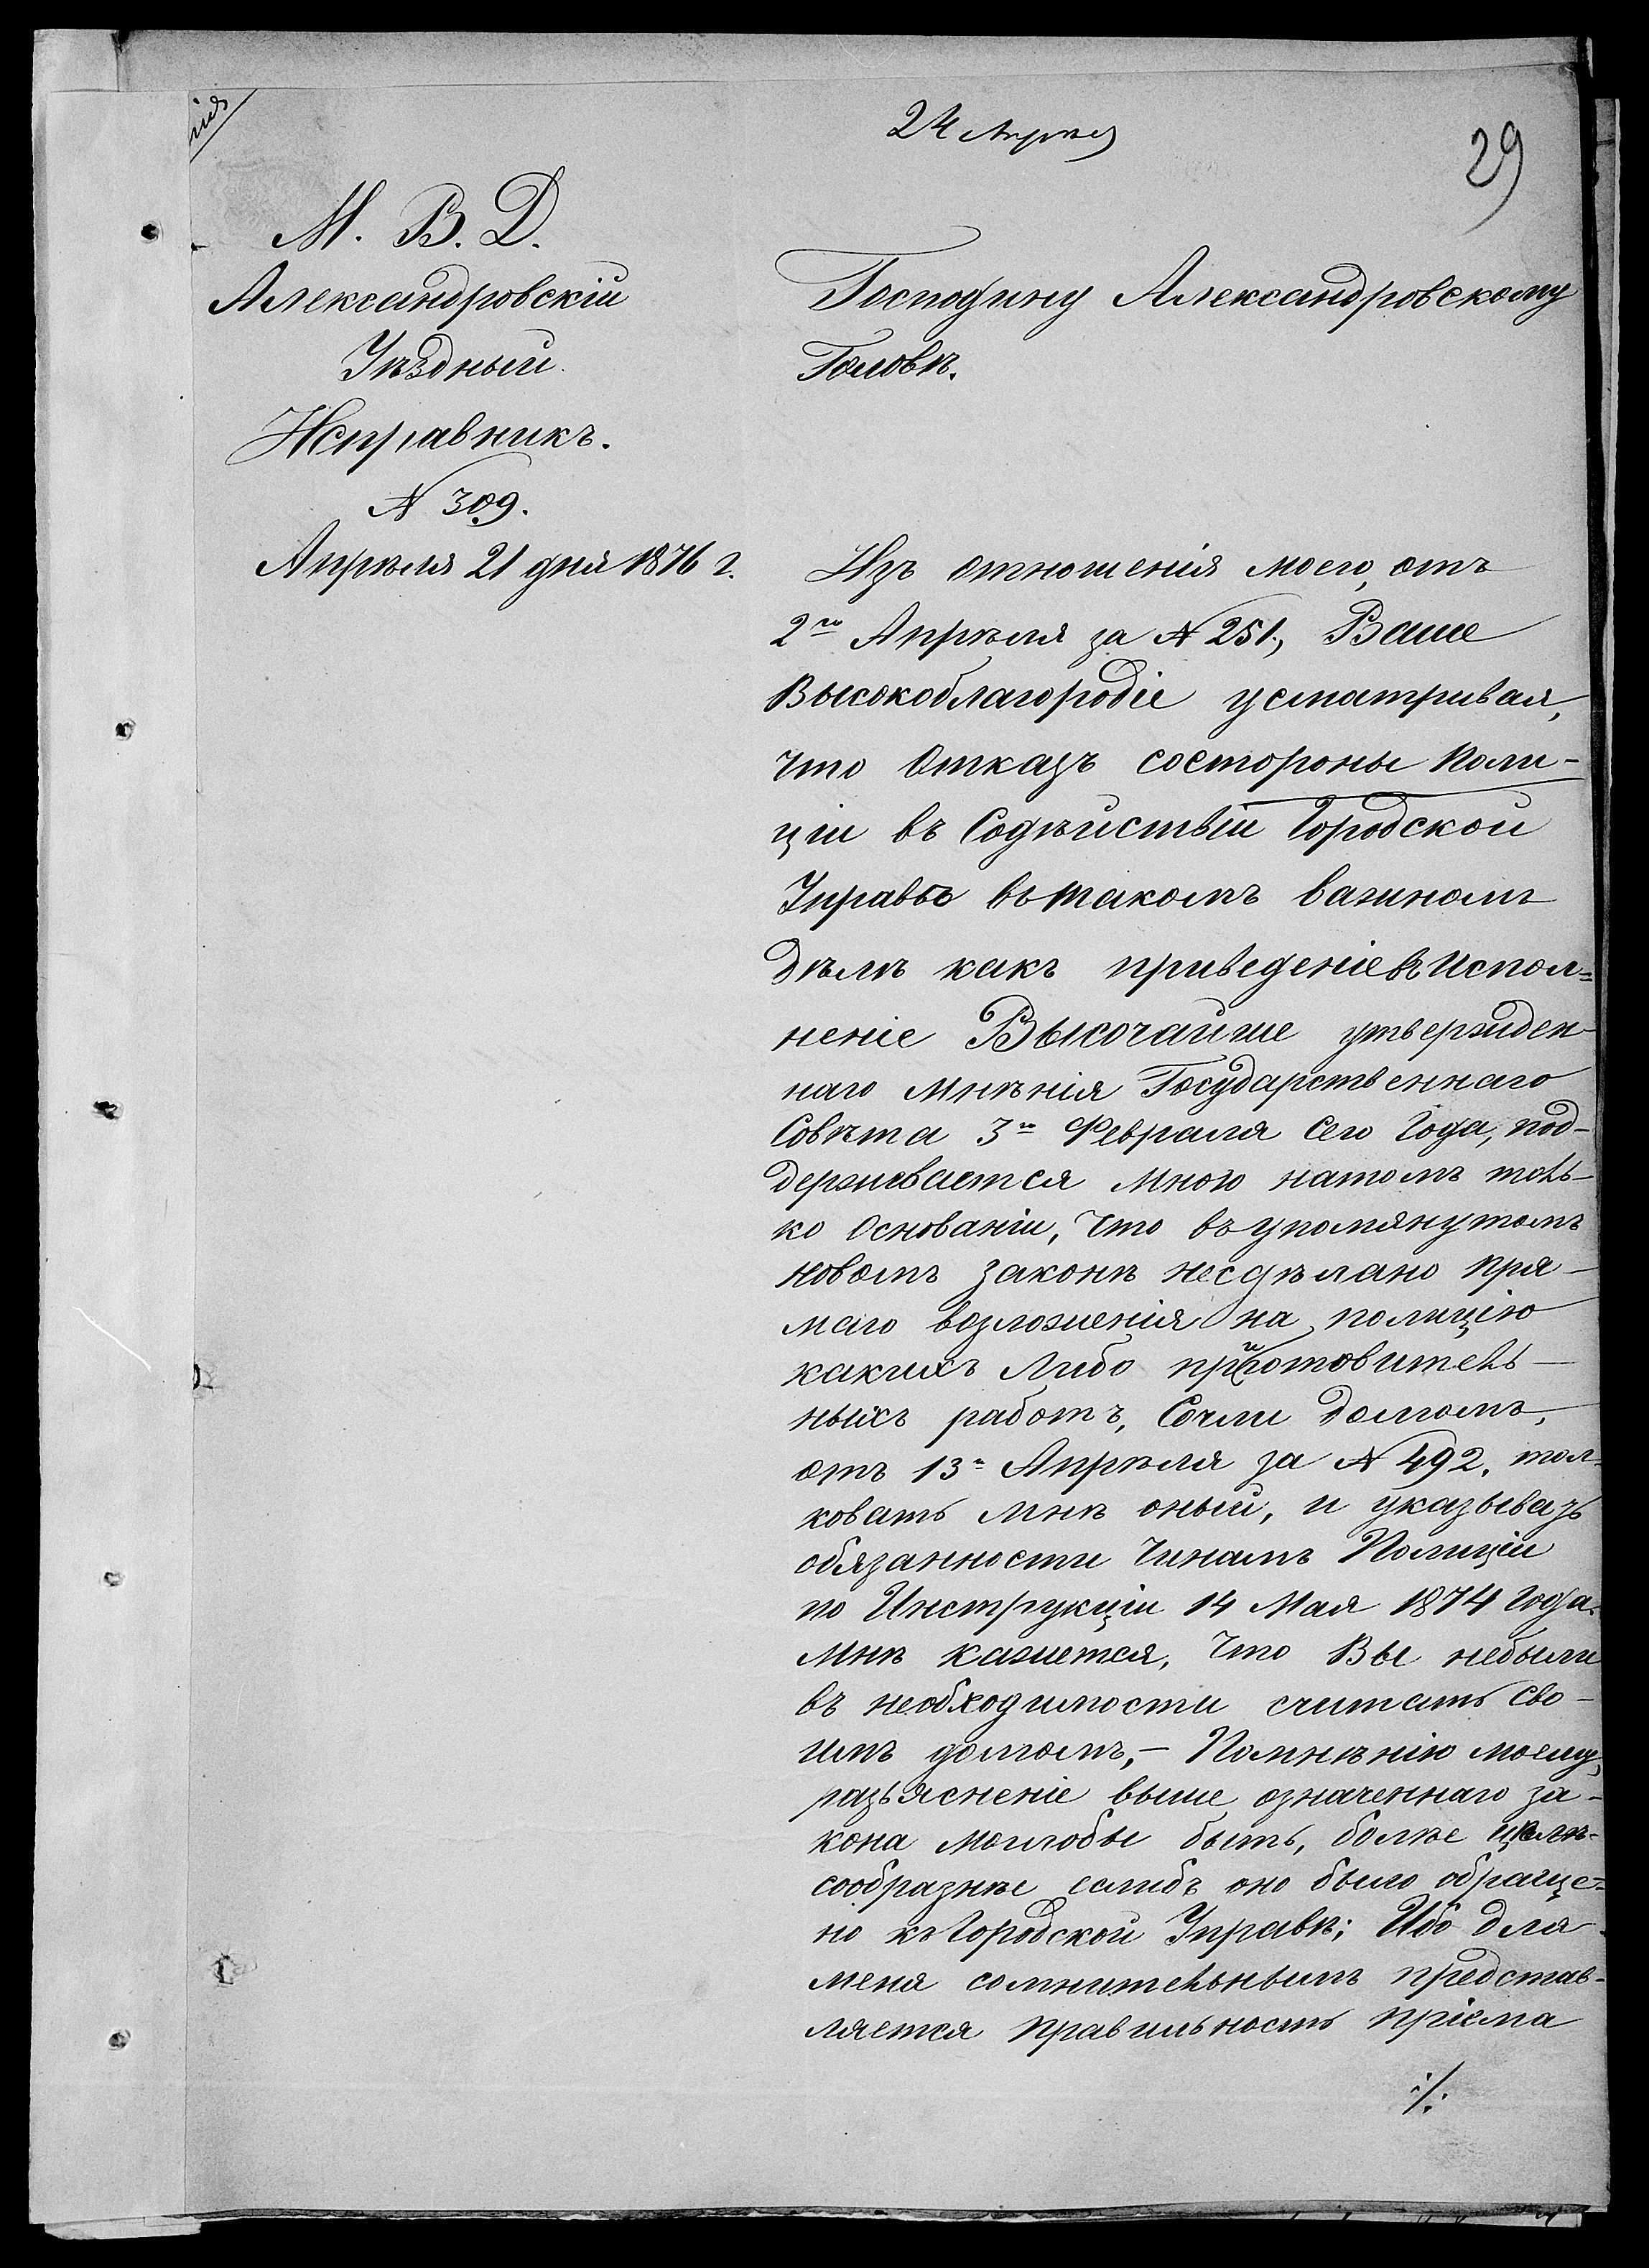 24 Апрѣл
29
М. В. Д.
Александровскій
Уѣздный
Исправникъ.
№ 309.
Апрѣля 21 дня 1876 г.
Господину Александровскому
Головѣ.
Изъ отношенія моего, отъ
2го Апрѣля за № 251., Ваше
Высокоблагородіе усматривая,
что отказъ состороны Поли-
ціи въ Содѣйствіи Городской
Управѣ въ такомъ важномъ
дѣлѣ какъ приведеніе въ испол=
неніе Высочайше утвержден-
наго мнѣнія Государственнаго
Совѣта 3го Февраля сего Года, под-
держивается мною натомъ толь-
ко основаніи, что въ упомянутомъ
новомъ законѣ несдѣлано пря-
маго возложенія на полицію
какихъ либо приготовитель-
ныхъ работъ, Сочли долгомъ,
отъ 13го Апрѣля за № 492, тол-
ковать мнѣ оный, и указывать
обязанности Чинамъ Полиціи
по Инструкціи 14 Мая 1874 Года.
Мнѣ кажется, что Вы небыли
въ необходимости считать сво-
имъ долгомъ,- Помнѣнію моему,
разъясненіе выше означеннаго за-
кона моглобы быть, болѣе цѣле-
сообразнѣе еслибъ оно было обраще=
но къ Городской Управѣ; Ибо для
меня сомнительнымъ представ-
ляется правильность пріема
./.